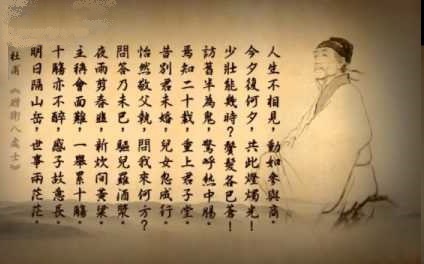 人生不相見，動如參與商。
今夕復何夕，共此燈燭光！
少壯能幾時？鬢髮各已蒼！
訪舊半為鬼，驚呼熱中腸。
焉知二十載，重上君子堂。
昔別君未婚，兒女忽成行。
怡然敬父執，問我來何方？
問答乃未已，驅兒羅酒漿。
夜雨剪春韭，新炊間黃粱。
主稱會面難，一舉累十觴。
十觴亦不醉，感子故意長。
明日隔山岳，世事兩茫茫。
杜甫《贈衛八處士》